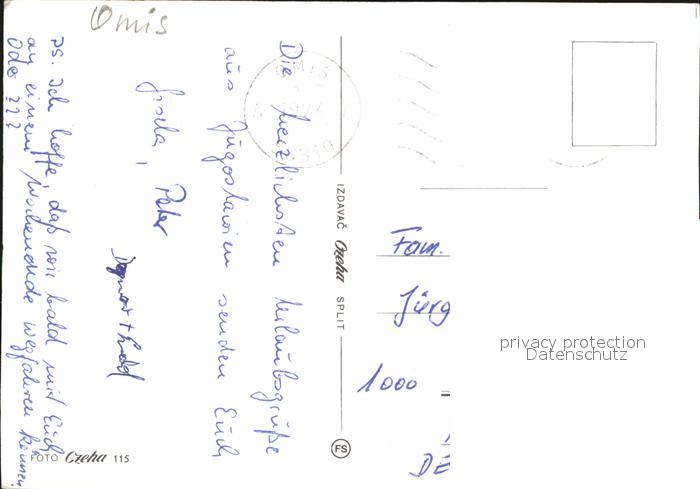 Omis
Die herzlichsten Urlaubsgrüße
aus Jugoslawien senden Euch
Gisela, Peter
Dagmar +
PS. Ich hoffe, daß wir bald mit Euch
an einem Wochenende wegfahren können
Oder ???
FOTO Czeha 115
IZDAVAČ Czeha SPLIT
FS
OMIŠ
Fam.
Jürg
1000
DE
privacy protection
Datenschutz